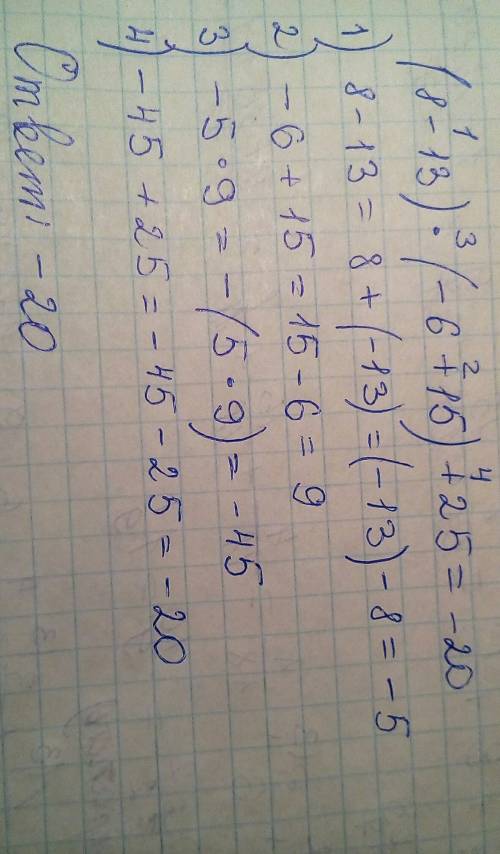 (8 - 13) · (-6 + 15) + 25 = -20
1) 8 - 13 = 8 + (-13) = (-13) - 8 = -5
2) -6 + 15 = 15 - 6 = 9
3) -5 · 9 = -(5 · 9) = -45
4) -45 + 25 = -45 - 25 = -20
Ответ: -20